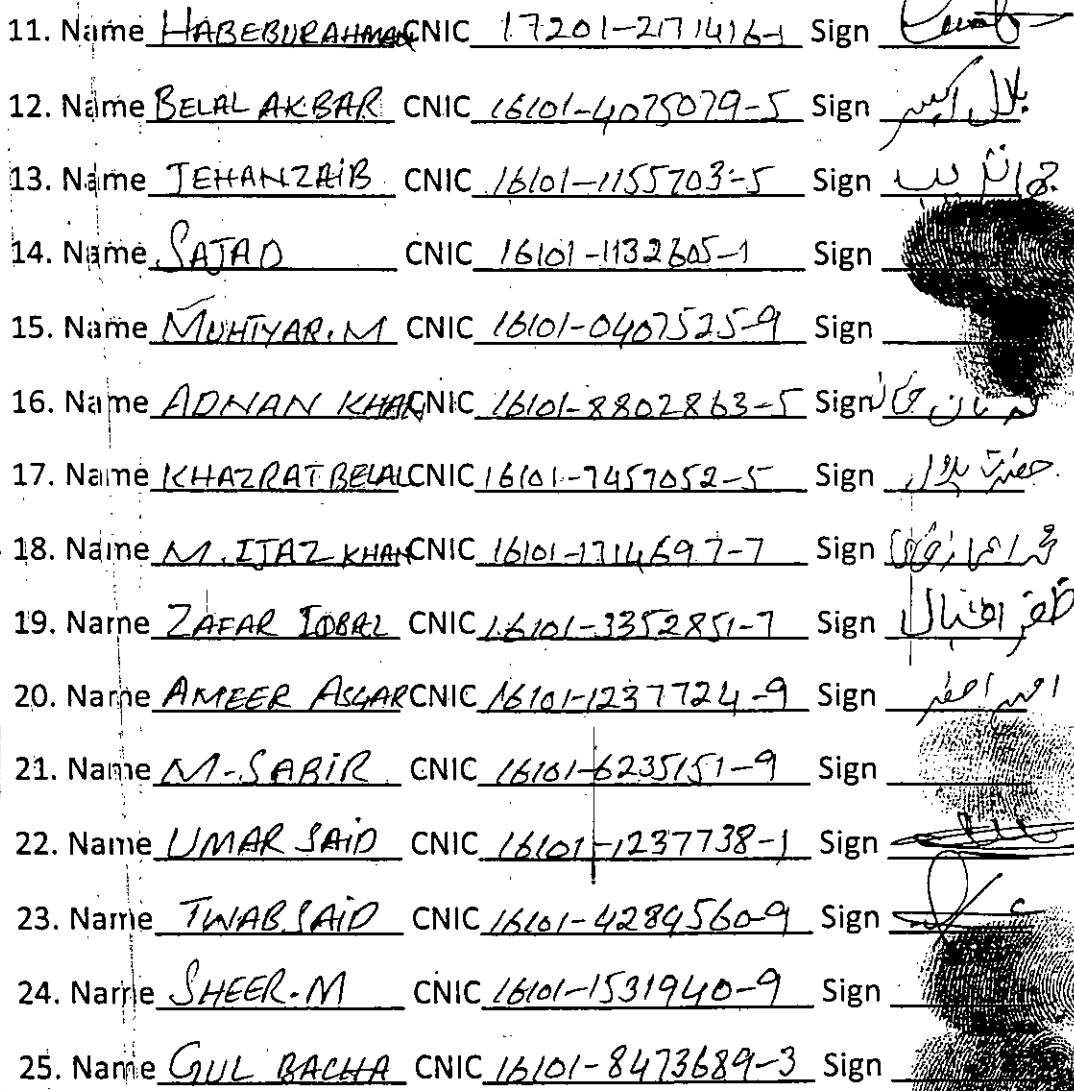 11. Name HABEBURAHMAN CNIC 17201-2171416-1 Sign
12. Name BELAL AKBAR CNIC 16101-4075079-5 Sign بلال اکبر
13. Name JEHANZAIB CNIC 16101-1155703-5 Sign جہانزیب
14. Name SAJAD CNIC 16101-1132605-1 Sign
15. Name MUHTYAR.M CNIC 16101-0407525-9 Sign
16. Name ADNAN KHAN CNIC 16101-8802863-5 Sign
17. Name KHAZRAT BELAL CNIC 16101-7457052-5 Sign حضرت بلال
18. Name M.IJAZ KHAN CNIC 16101-1714697-7 Sign
19. Name ZAFAR IQBAL CNIC 16101-3352851-7 Sign ظفر اقبال
20. Name AMEER ASGAR CNIC 16101-1237724-9 Sign
21. Name M-SABIR CNIC 16101-6235151-9 Sign
22. Name UMAR SAID CNIC 16101-1237738-1 Sign
23. Name TWAB SAID CNIC 16101-4284560-9 Sign
24. Name SHEER.M CNIC 16101-1531940-9 Sign
25. Name GUL BACHA CNIC 16101-8473689-3 Sign